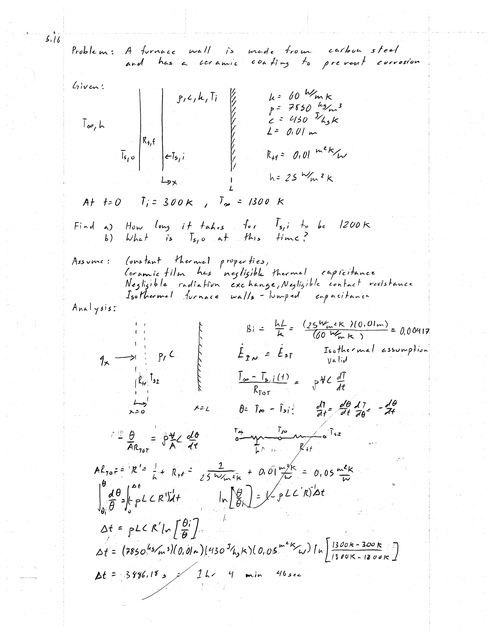 5.16
Problem: A furnace wall is made from carbon steel
and has a ceramic coating to prevent corrosion
Given:
ρ, c, k, Ti
T∞, h
R t,f
Ts,o
Ts,i
x
L
k = 60 W/mK
ρ = 7850 kg/m³
c = 430 J/kgK
L = 0.01 m
Rtf = 0.01 m²K/W
h = 25 W/m²K
At t=0 Ti = 300K , T∞ = 1300 K
Find a) How long it takes for Ts,i to be 1200K
b) What is Ts,o at this time?
Assume: Constant thermal properties,
Ceramic film has negligible thermal capacitance
Negligible radiation exchange, Negligible contact resistance
Isothermal furnace walls - lumped capacitance
Analysis:
Bi = hL/k = (25 W/m²K)(0.01m)/(60 W/mK) = 0.00417
qx
ρ, C
x=0
x=L
Ė IN = Ė ST
Isothermal assumption
valid
T∞ - Ts,i(t) / R TOT = ρ∀C dT/dt
θ = T∞ - Ts,i
dT/dt = dθ/dt dT/dθ = -dθ/dt
- θ/AR TOT = ρ ∀/A C dθ/dt
AR TOT = R' = 1/h + Rtf = 1/25 W/m²K + 0.01 m²K/W = 0.05 m²K/W
Δt = ρLCR' ln[θi/θ]
Δt = (7850 kg/m³)(0.01m)(430 J/kgK)(0.05 m²K/W) ln[1300K-300K / 1300K-1200K]
Δt = 3886.18s = 1 hr 4 min 46sec